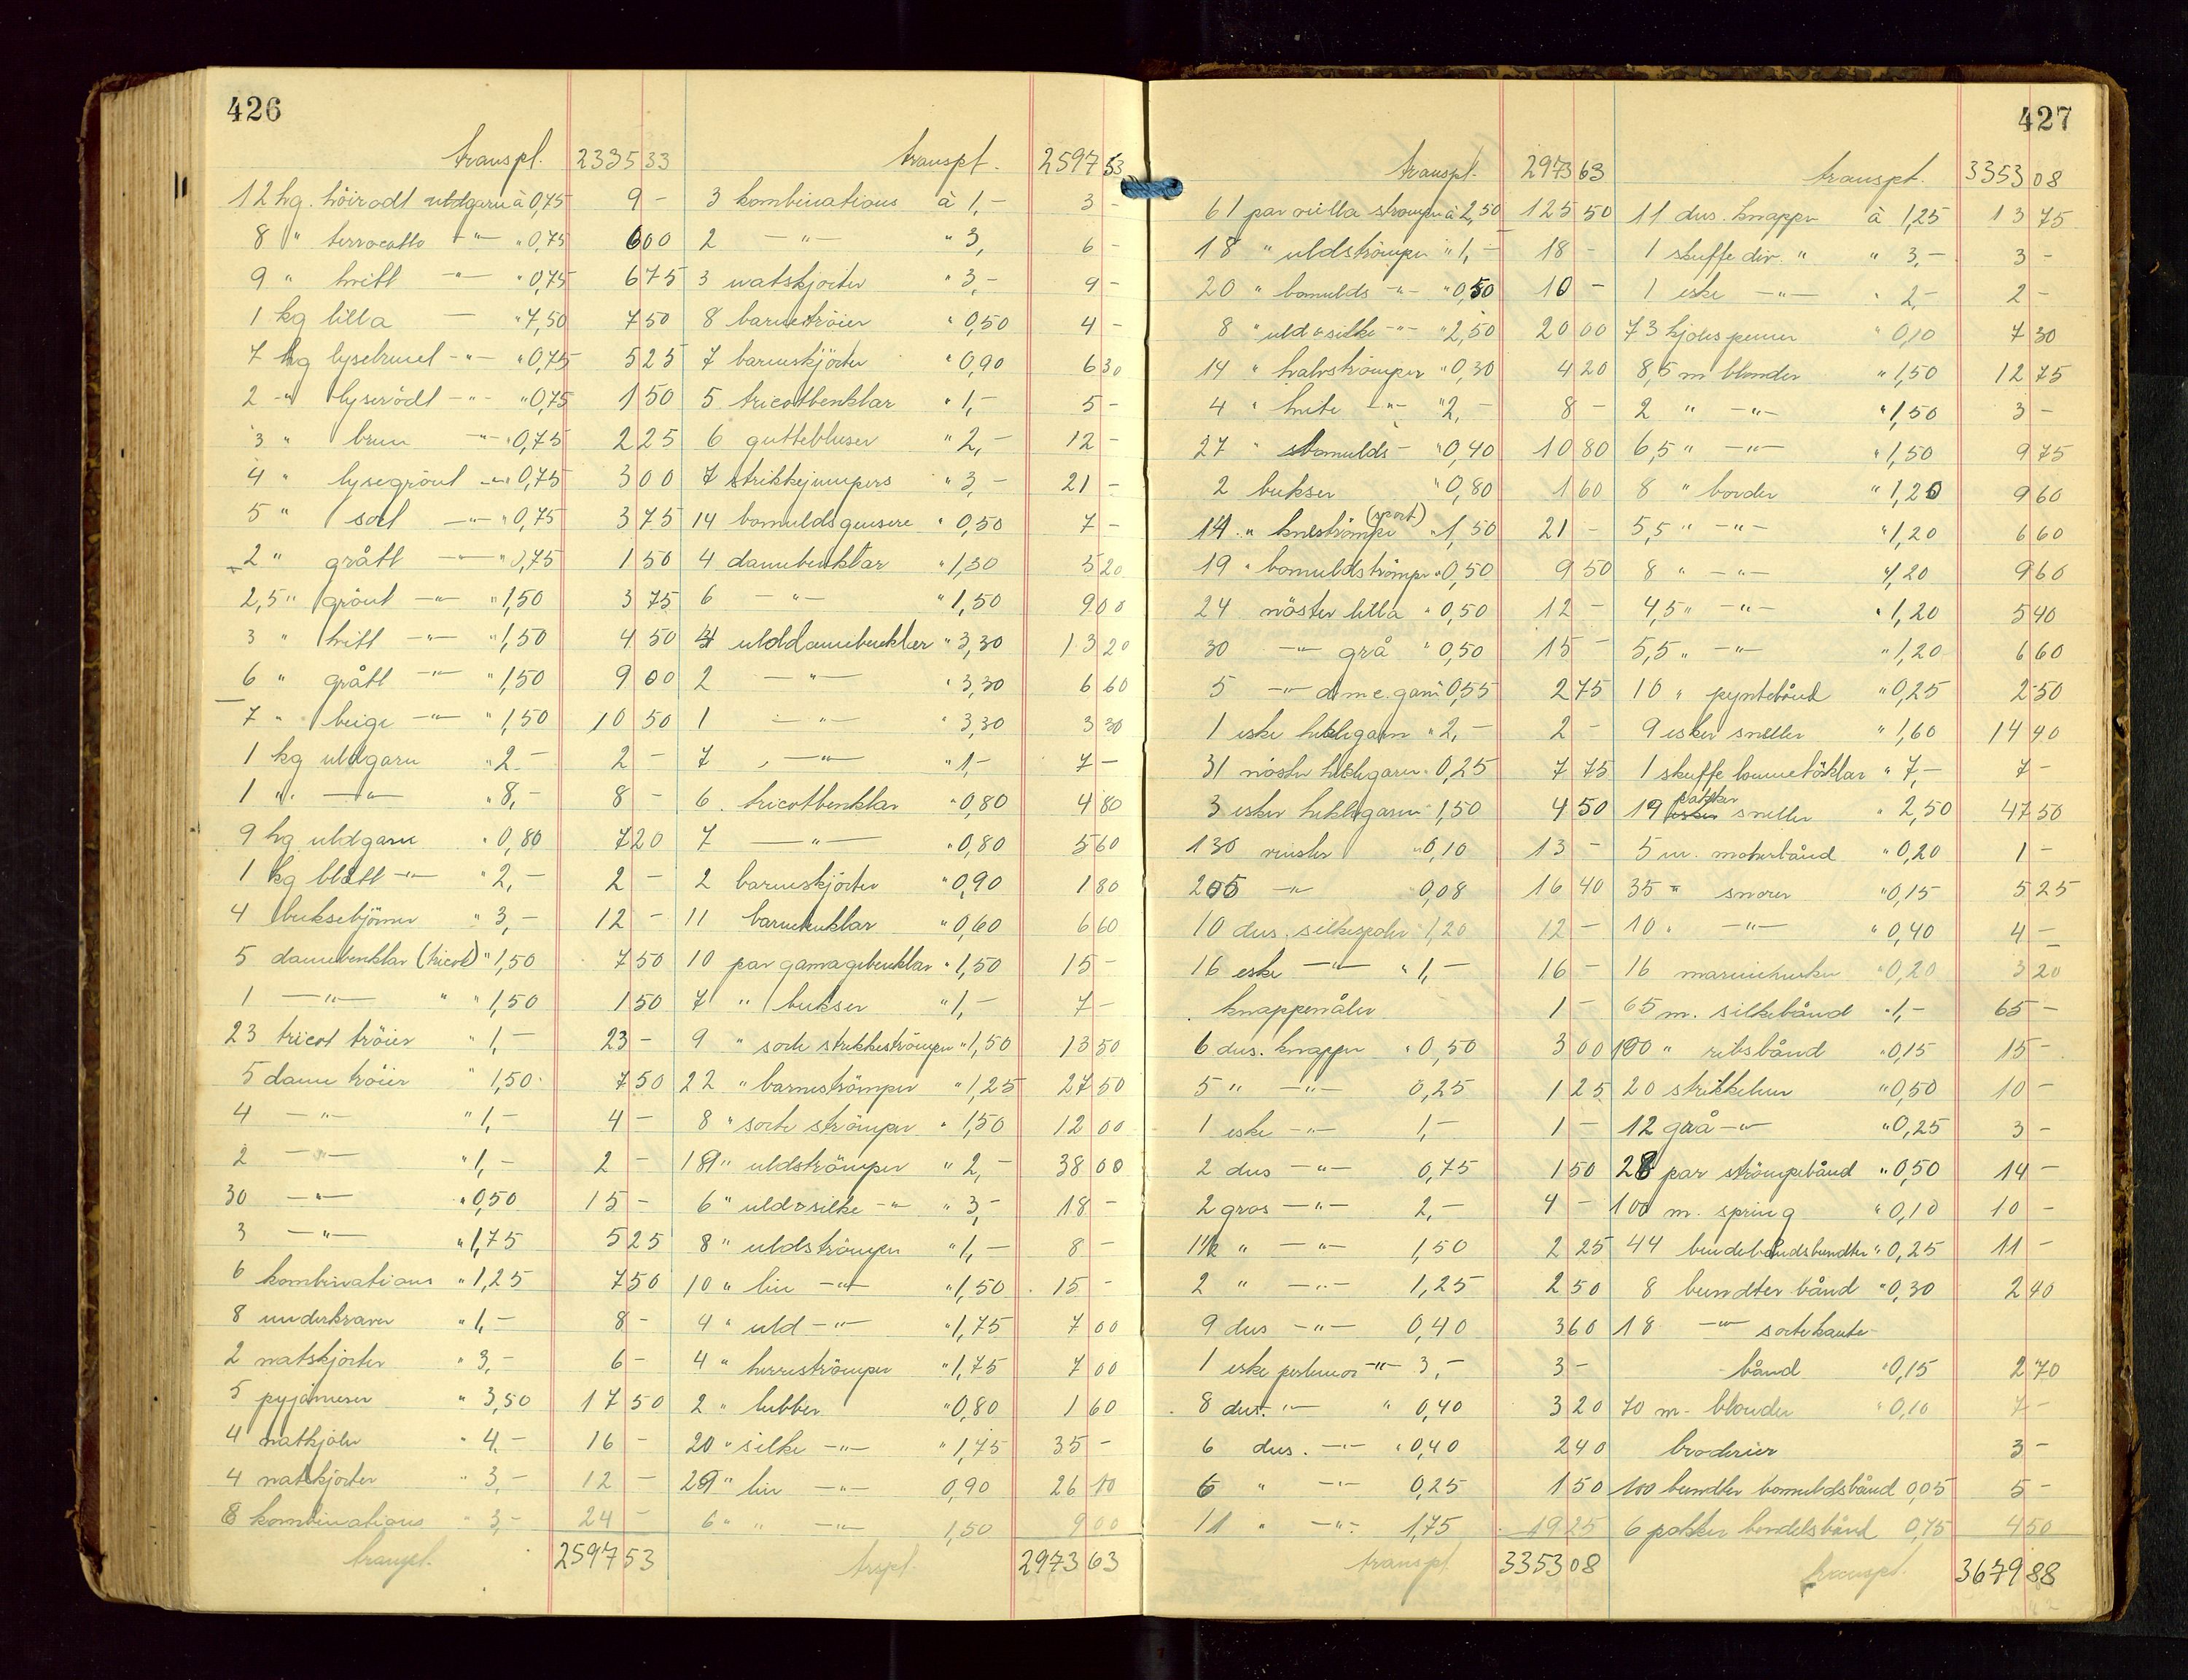 426
transpt. 2335 33
12 hg. höirødt uldgarn à 0,75 9 -
8 " terracotta -"- " 0,75 6 00
9 " hvitt -"- " 0,75 6 75
1 kg lilla — " 7,50 7 50
7 hg lysebrunt -"- " 0,75 5 25
2 -"- lyserödt -"- " 0,75 1 50
3 " brun -"- " 0,75 2 25
4 " lysegrönt -"- " 0,75 3 00
5 " sort -"- " 0,75 3 75
2 " grått -"- " 0,75 1 50
2,5 " grönt -"- " 1,50 3 75
3 " hvitt -"- " 1,50 4 50
6 " grått -"- " 1,50 9 00
7 " beige -"- " 1,50 10 50
1 kg uldgarn " 2- 2 -
1 " -"- " 8,- 8 -
9 hg uldgarn " 0,80 7 20
1 kg blått -"- " 2,- 2 -
4 " 3,- 12 -
5 damebenklær (tricot) " 1,50 7 50
1 -"- " " 1,50 1 50
23 tricot tröier " 1,- 23 -
5 dame tröier " 1,50 7 50
4 -"- " 1,- 4 -
2 -"- " 1,- 2 -
30 -"- " 0,50 15 -
3 -"- " 1,75 5 25
6 kombinations " 1,25 7 50
8 underkraver " 1,- 8 -
2 natskjorter " 3,- 6 -
5 pyjamaser " 3,50 17 50
4 natkjoler " 4,- 16 -
4 natskjorter " 3,- 12 -
8 kombinations " 3,- 24 -
transpt. 2597 53
transpt. 2597 53
3 kombinations à 1,- 3 -
2 -"- " 3, 6 -
3 natskjorter " 3,- 9 -
8 barnetröier " 0,50 4 -
7 barneskjörter " 0,90 6 30
5 tricotbenklær " 1,- 5 -
6 guttebluser " 2,- 12 -
7 strikkejumpers " 3,- 21 -
14 bomuldsgensere " 0,50 7 -
4 damebenklær " 1,30 5 20
6 -"- " 1,50 9 00
4 ulddamebenklær " 3,30 13 20
2 -"- " 3,30 6 60
1 -"- " 3,30 3 30
7 -"- " 1,- 7 -
6 tricotbenklær " 0,80 4 80
7 -"- " 0,80 5 60
2 barneskjörter " 0,90 1 80
11 barnebenklær " 0,60 6 60
10 par gamagebenklær " 1,50 15 -
7 " bukser " 1,- 7 -
9 " sorte strikkeströmper " 1,50 13 50
22 " barneströmper " 1,25 27 50
8 " sorte strömper " 1,50 12 00
19 " uldströmper " 2,- 38 00
6 " uld o silke -"- " 3,- 18 -
8 " uldströmper " 1,- 8 -
10 " lin -"- " 1,50 15 -
4 " uld -"- " 1,75 7 00
4 " herreströmper " 1,75 7 00
2 " lubber " 0,80 1 60
20 " silke -"- " 1,75 35 -
29 " lin -"- 0,90 26 10
6 " " -"- 1,50 9 00
trspt. 2973 63
427
transpt. 2973 63
61 par strömper à 2,50 125 50
18 " uldströmper " 1,- 18 -
20 " bomulds -"- " 0,50 10 -
8 " uld o silke -"- " 2,50 20 00
14 " halvströmper " 0,30 4 20
4 " hvite -"- " 2,- 8 -
27 " bomulds - " 0,40 10 80
2 bukser " 0,80 1 60
14 " kneströmper (sport) " 1,50 21 -
19 " bomuldströmper " 0,50 9 50
24 nöster lilla " 0,50 12 -
30 -"- grå " 0,50 15 -
5 -"- d.m.c. garn 0,55 2 75
1 eske heklegarn " 2,- 2 -
31 nöster heklegarn " 0,25 7 75
3 esker heklegarn " 1,50 4 50
130 " 0,10 13 -
205 -"- 0,08 16 40
10 dus. 1,20 12 -
16 eske -"- " 1,- 16 -
knappenåler 1 -
6 dus. knapper " 0,50 3 00
5 " -"- 0,25 1 25
1 eske -"- 1,- 1 -
2 dus -"- 0,75 1 50
2 gros -"- 2,- 4 -
1½ " -"- 1,50 2 25
2 " -"- 1,25 2 50
9 dus -"- 0,40 3 60
1 eske perlemor -"- 3,- 3 -
8 dus. -"- " 0,40 3 20
6 dus. -"- " 0,40 2 40
6 " -"- 0,25 1 50
11 " -"- 1,75 19 25
transpt 3353 08
transpt. 3353 08
11 dus. knapper à 1,25 13 75
1 skuffe div. " " 3,- 3 -
1 eske -"- " 2,- 2 -
73 kjolespenner " 0,10 7 30
8,5 m blonder " 1,50 12 75
2 " -"- " 1,50 3 -
6,5 " -"- " 1,50 9 75
8 " border " 1,20 9 60
5,5 " -"- " 1,20 6 60
8 " -"- " 1,20 9 60
4,5 " -"- " 1,20 5 40
5,5 " -"- " 1,20 6 60
10 " pyntebånd " 0,25 2 50
9 esker sneller " 1,60 14 40
1 skuffe lommetörklær " 7,- 7 -
19 pakker sneller " 2,50 47 50
5 m. " 0,20 1 -
35 " snorer " 0,15 5 25
10 " -"- " 0,40 4 -
16 " 0,20 3 20
65 m. silkebånd " 1,- 65 -
100 " ribsbånd " 0,15 15 -
20 strikkeluer " 0,50 10 -
12 grå -"- " 0,25 3 -
28 par strömpebånd " 0,50 14 -
100 m. spring " 0,10 10 -
44 bendelbåndsbundter " 0,25 11 -
8 bundter bånd " 0,30 2 40
18 -"- sorte kante-
bånd " 0,15 2 70
70 m. blonder " 0,10 7 -
broderier 3 -
100 bundter bomuldsbånd 0,05 5 -
6 pakker bendelsbånd 0,75 4 50
transpt. 3679 88